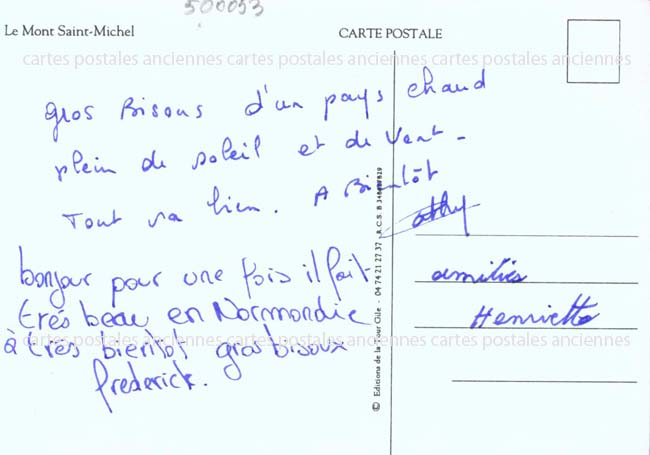 500053
Le Mont Saint-Michel
CARTE POSTALE
cartes postales anciennes cartes postales anciennes cartes postales anciennes
gros Bisous d'un pays chaud
plein de soleil et de vent-
Tout va bien. A Bientôt
bonjour pour une fois il fait
très beau en Normandie
à très bientot gros bisoux
frederick.
amitiés
Henriette
cartes postales anciennes cartes postales anciennes cartes postales anciennes
© Editions de la Tour Gile - 04 74 21 27 37 - R.C.S. B